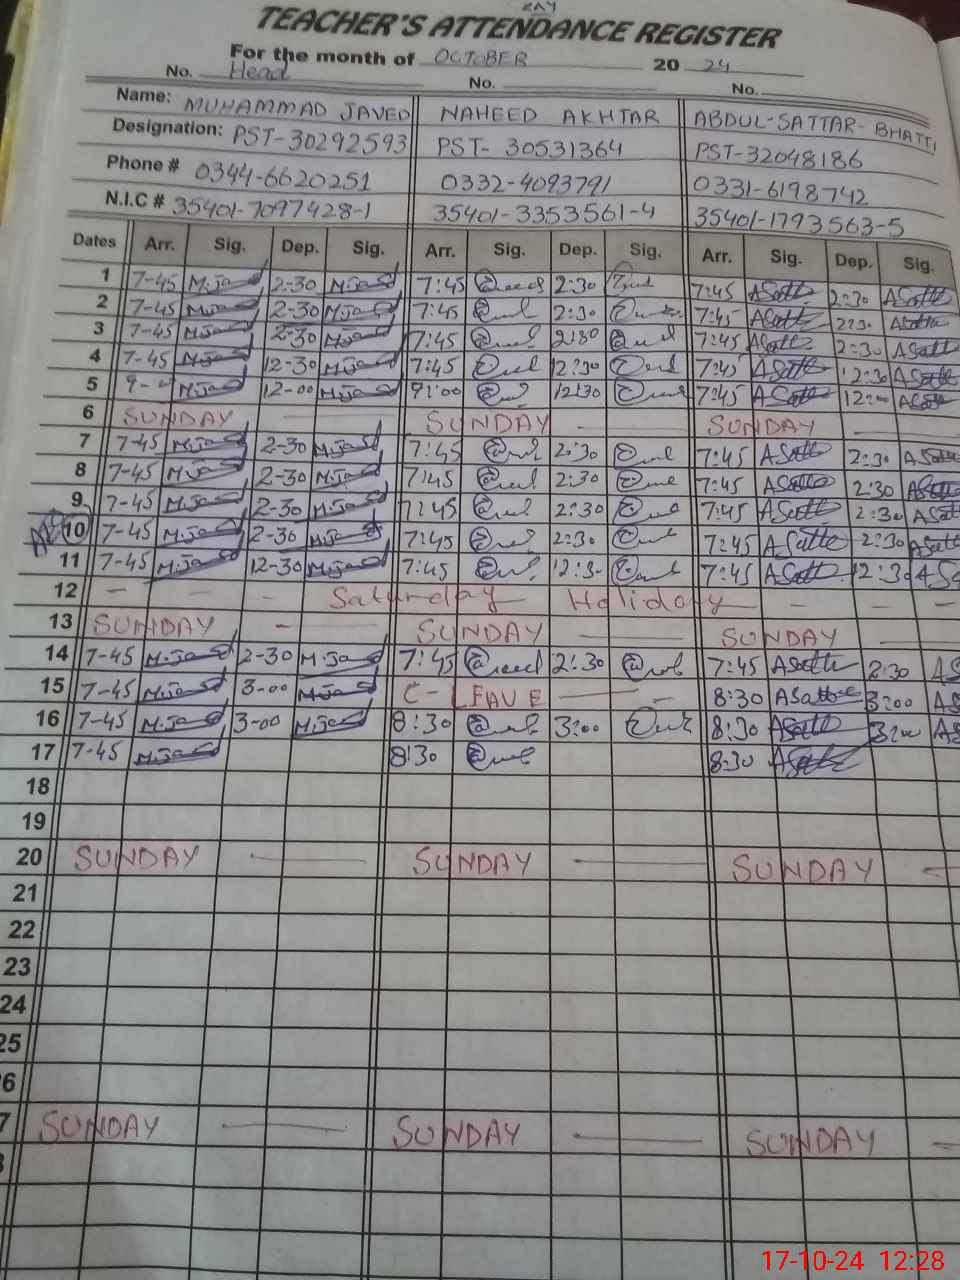 TEACHER'S ATTENDANCE REGISTER
For the month of OCTOBER 20 24
No. Head No. No.
Name: MUHAMMAD JAVED NAHEED AKHTAR ABDUL-SATTAR-BHATTI
Designation: PST-30292593 PST-30531364 PST-32048186
Phone # 0344-6620251 0332-4093791 0331-6198742
N.I.C # 35401-7097428-1 35401-3353561-4 35401-1793563-5
Dates Arr. Sig. Dep. Sig. Arr. Sig. Dep. Sig. Arr. Sig. Dep. Sig.
1 7-45 M.Javed 2-30 M.Javed 7:45 2:30 7:45 ASatta 2:30 ASatta
2 7-45 M.Javed 2-30 M.Javed 7:45 2:30 7:45 ASatta 2:30 ASatta
3 7-45 M.Javed 2-30 M.Javed 7:45 2:30 7:45 ASatta 2:30 ASatta
4 7-45 M.Javed 12-30 M.Javed 7:45 12:30 7:45 ASatta 12:30 ASatta
5 M.Javed 12-00 M.Javed 9:00 12:30 7:45 ASatta 12:00 ASatta
6 SUNDAY — SUNDAY — SUNDAY —
7 7-45 M.Javed 2-30 M.Javed 7:45 2:30 7:45 ASatta 2:30 ASatta
8 7-45 M.Javed 2-30 M.Javed 7:45 2:30 7:45 ASatta 2:30 ASatta
9 7-45 M.Javed 2-30 M.Javed 7:45 2:30 7:45 ASatta 2:30 ASatta
10 7-45 M.Javed 2-30 M.Javed 7:45 2:30 7:45 ASatta 2:30 ASatta
11 7-45 M.Javed 12-30 M.Javed 7:45 12:30 7:45 ASatta 12:30 ASa
12 — — — Saturday Holiday — — —
13 SUNDAY — SUNDAY — SUNDAY —
14 7-45 M.Javed 2-30 M.Javed 7:45 2:30 7:45 ASatta 2:30 AS
15 7-45 M.Javed 3-00 M.Javed C-LEAVE — 8:30 ASatta 3:00 AS
16 7-45 M.Javed 3-00 M.Javed 8:30 3:00 8:30 ASatta 3:00 AS
17 7-45 M.Javed 8:30 8:30 ASatta
18
19
20 SUNDAY — SUNDAY — SUNDAY —
21
22
23
24
25
6
7 SUNDAY — SUNDAY — SUNDAY —
17-10-24 12:28